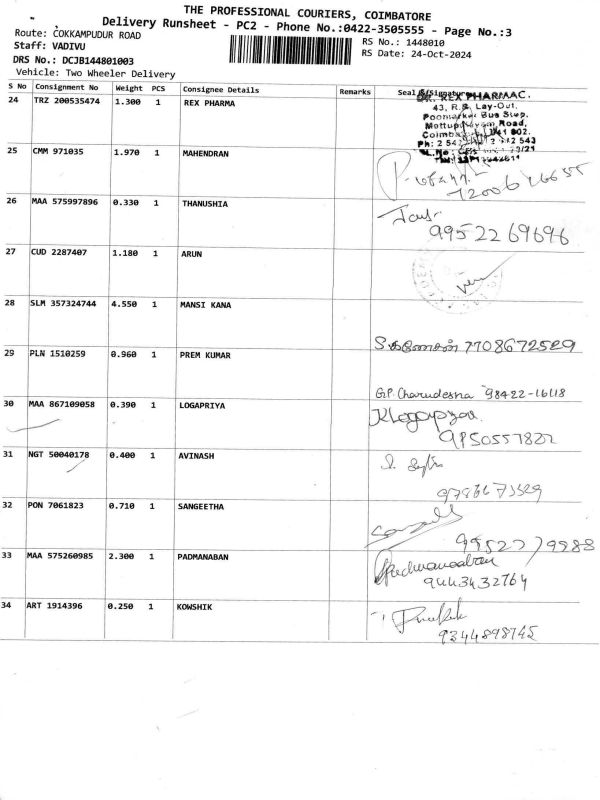 THE PROFESSIONAL COURIERS, COIMBATORE
Delivery Runsheet - PC2 - Phone No.:0422-3505555 - Page No.:3
Route: COKKAMPUDUR ROAD
Staff: VADIVU
RS No.: 1448010
DRS No.: DCJB144801003
RS Date: 24-Oct-2024
Vehicle: Two Wheeler Delivery
S No Consignment No Weight PCS Consignee Details Remarks Seal &Signature
24 TRZ 200535474 1.300 1 REX PHARMA
REX PHARMAC.
43, R.S, Lay-Out,
Bus Stop,
Road,
25 CMM 971035 1.970 1 MAHENDRAN
26 MAA 575997896 0.330 1 THANUSHIA
9952269696
27 CUD 2287407 1.180 1 ARUN
28 SLM 357324744 4.550 1 MANSI KANA
7708672529
29 PLN 1510259 0.960 1 PREM KUMAR
G.P. Charudesna 98422-16118
30 MAA 867109058 0.390 1 LOGAPRIYA
31 NGT 50040178 0.400 1 AVINASH
32 PON 7061823 0.710 1 SANGEETHA
33 MAA 575260985 2.300 1 PADMANABAN
9443432764
34 ART 1914396 0.250 1 KOWSHIK
9344898745